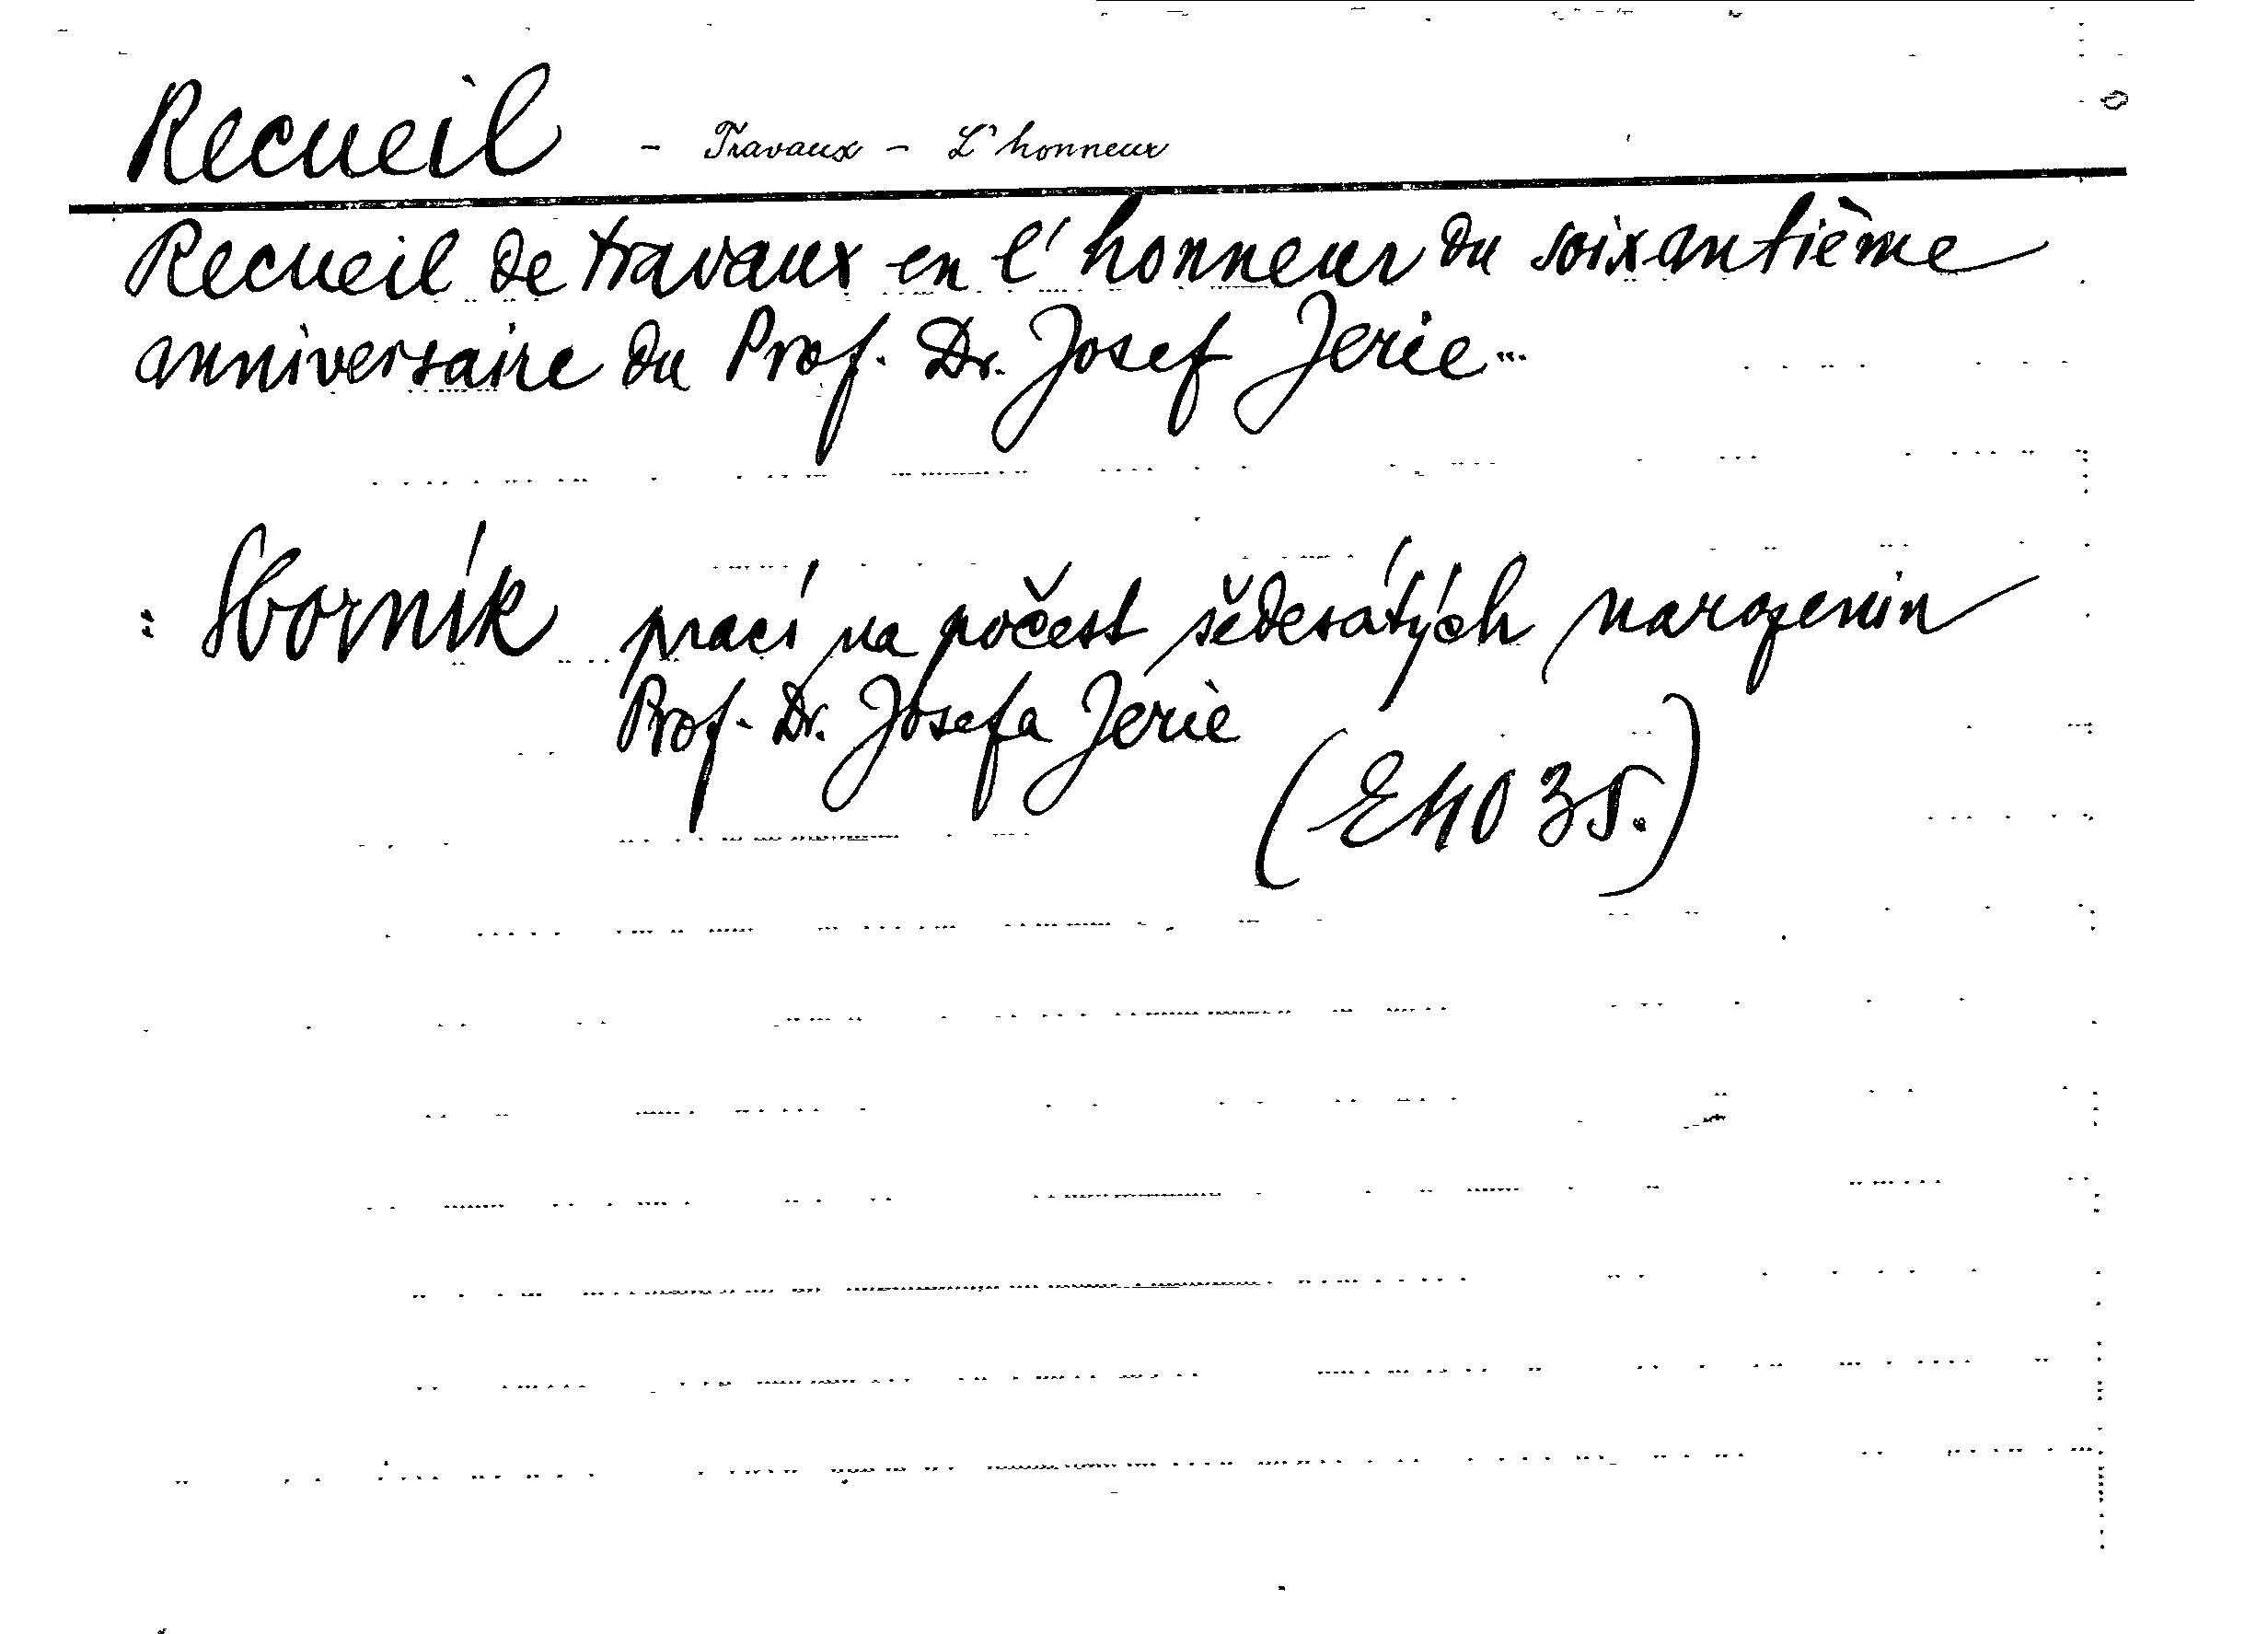 Recueil - Travaux - L'honneur
Recueil de travaux en l'honneur du soixantième
anniversaire du Prof. Dr. Josef Jerie...
: Sborník prací na počest šedesátých narozenin
Prof. Dr. Josefa Jerie
(E 4035.)